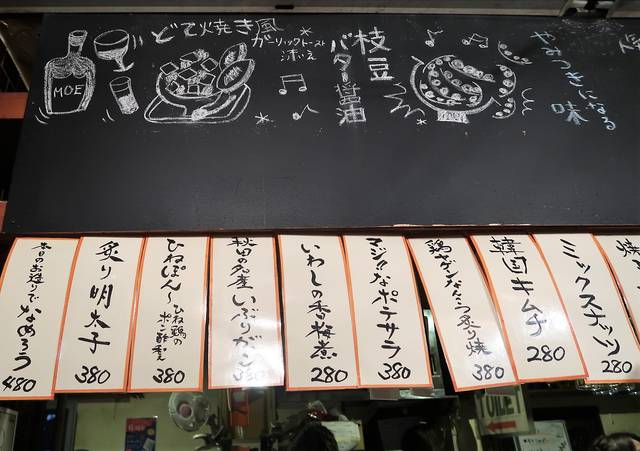 どて焼き風
ガーリックトースト
添え
MOE
枝豆
バター醤油
やみつきになる
味
本日のお造りで
なめろう
480
炙り明太子
380
ひねぽん〜
ひね鶏の
ポン酢和え
380
秋田の名産いぶりがっこ
380
いわしの香梅煮
280
マジ!?なポテサラ
380
鶏ヤゲンなんこつ炙り焼
380
韓国キムチ
280
ミックスナッツ
280
焼
TOILET